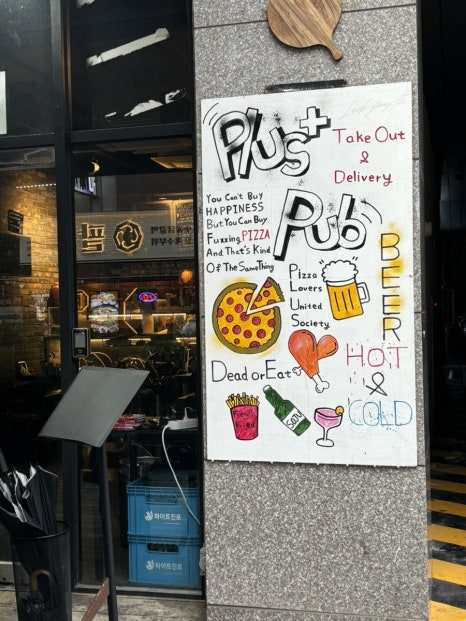 Plus+
Take Out
&
Delivery
You Can't Buy
HAPPINESS
But You Can Buy
Fuxxing PIZZA
And That's Kind
Of The SameThing
Pub
BEER
PIzza
Lovers
United
Society
Dead or Eat
HOT
&
COLD
French
Fried
하이트진로
하이트진로